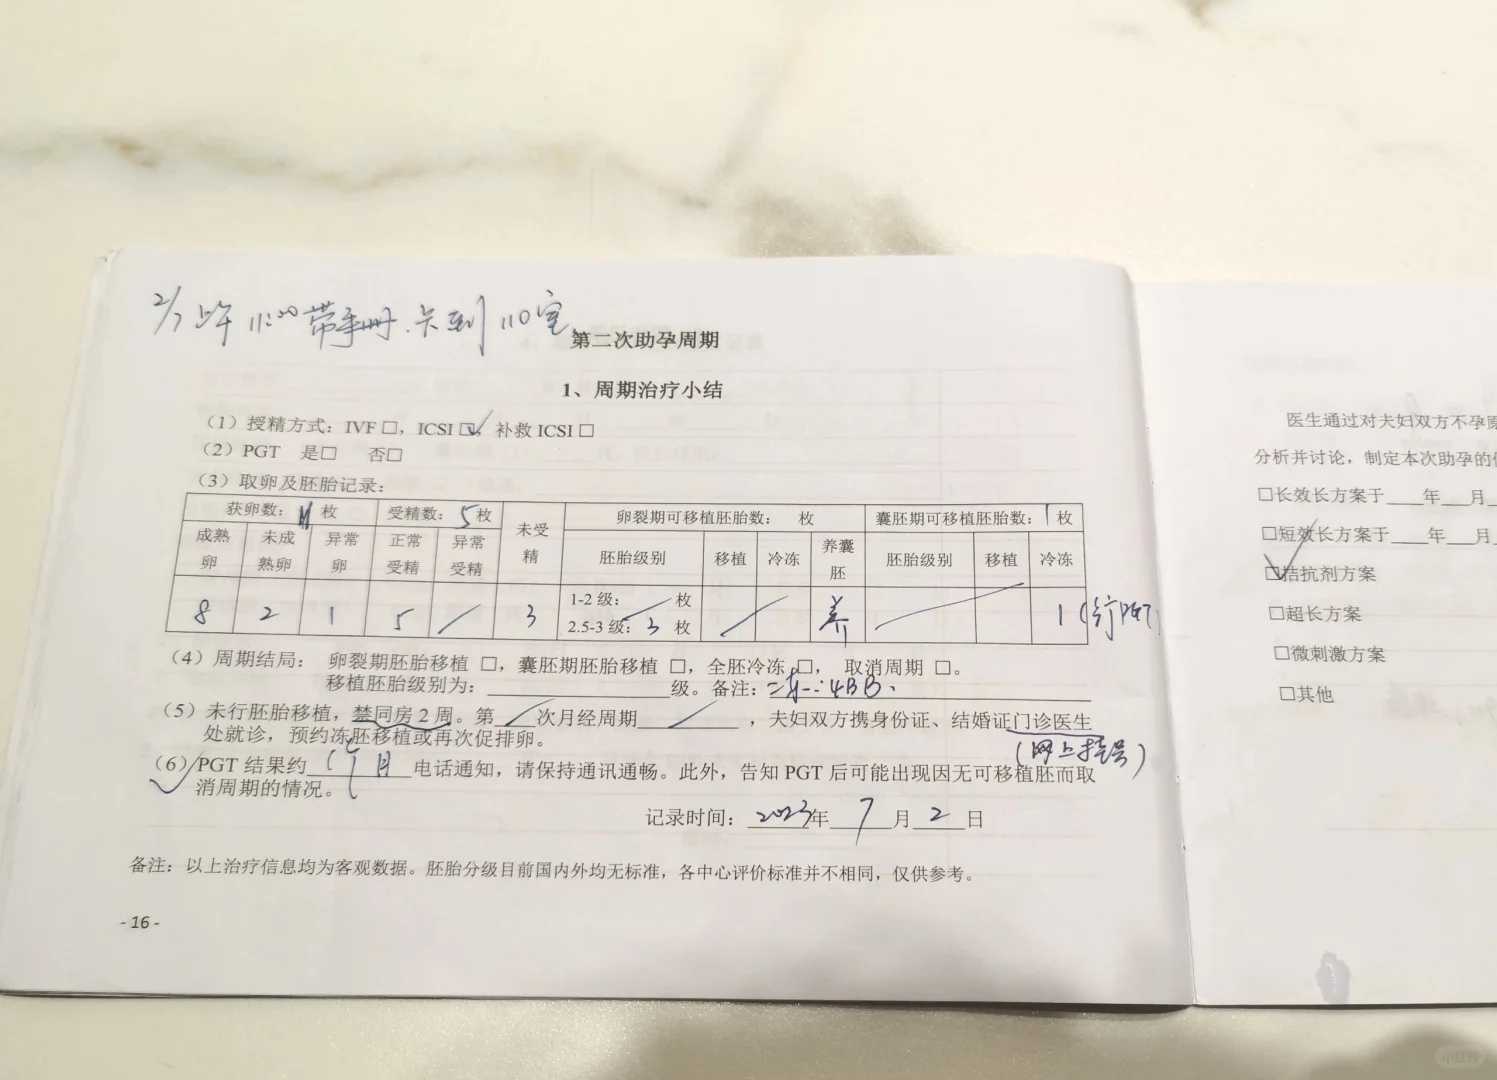 2/7 上午 11:00 带手册、卡到 110室
第二次助孕周期
1、周期治疗小结
(1)授精方式：IVF □，ICSI ☑ 补救 ICSI □
(2)PGT 是□ 否□
(3)取卵及胚胎记录：
获卵数：11 枚 受精数：5 枚 未受精 卵裂期可移植胚胎数： 枚 囊胚期可移植胚胎数：1 枚
成熟卵 未成熟卵 异常卵 正常受精 异常受精 胚胎级别 移植 冷冻 养囊胚 胚胎级别 移植 冷冻
8 2 1 5 / 3 1-2 级： 枚 / 养 1 (行PGT)
2.5-3 级：3 枚
(4)周期结局： 卵裂期胚胎移植 □，囊胚期胚胎移植 □，全胚冷冻 □， 取消周期 □。
移植胚胎级别为：____级。备注： 4BB.
(5)未行胚胎移植，禁同房 2 周。第 / 次月经周期 / ，夫妇双方携身份证、结婚证门诊医生
处就诊，预约冻胚移植或再次促排卵。
(网上挂号)
(6)PGT 结果约 1个月 电话通知，请保持通讯通畅。此外，告知 PGT 后可能出现因无可移植胚而取
消周期的情况。
记录时间：2023年 7 月 2 日
备注：以上治疗信息均为客观数据。胚胎分级目前国内外均无标准，各中心评价标准并不相同，仅供参考。
- 16 -
医生通过对夫妇双方不孕原
分析并讨论，制定本次助孕的
□长效长方案于____年___月
□短效长方案于____年___月
☑拮抗剂方案
□超长方案
□微刺激方案
□其他
小红书